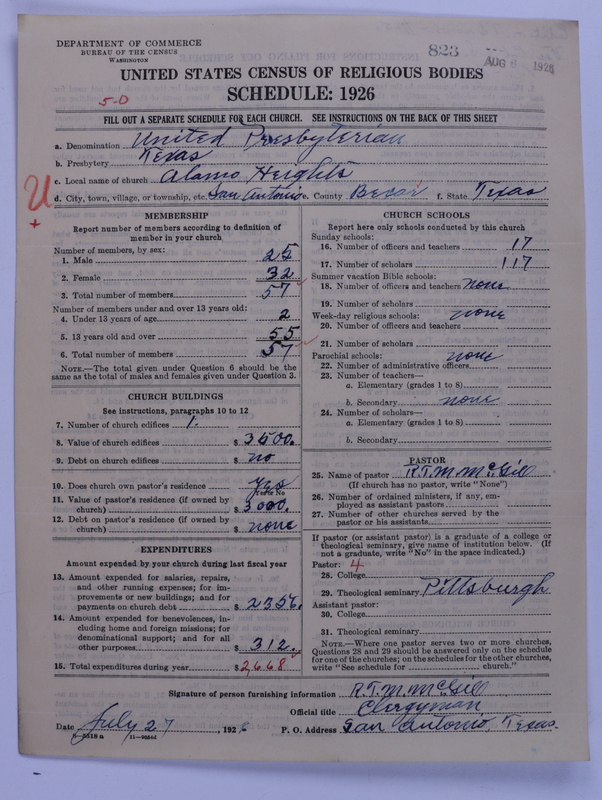 DEPARTMENT OF COMMERCE
BUREAU OF THE CENSUS
WASHINGTON
823
AUG 6 1926
UNITED STATES CENSUS OF RELIGIOUS BODIES
5-0
SCHEDULE: 1926
FILL OUT A SEPARATE SCHEDULE FOR EACH CHURCH. SEE INSTRUCTIONS ON THE BACK OF THIS SHEET
a. Denomination United Presbyterian
b. Presbytery Texas
c. Local name of church Alamo Heights
U
+
d. City, town, village, or township, etc. San Antonio e. County Bexar f. State Texas
MEMBERSHIP
Report number of members according to definition of
member in your church
Number of members, by sex:
1. Male 25
2. Female 32
3. Total number of members 57
Number of members under and over 13 years old:
4. Under 13 years of age 2
5. 13 years old and over 55
6. Total number of members 57
NOTE.—The total given under Question 6 should be the
same as the total of males and females given under Question 3.
CHURCH BUILDINGS
See instructions, paragraphs 10 to 12
7. Number of church edifices 1.
8. Value of church edifices $ 3500.
9. Debt on church edifices $ no
10. Does church own pastor's residence Yes
Yes or No
11. Value of pastor's residence (if owned by
church) $ 3000.
12. Debt on pastor's residence (if owned by
church) $ none
EXPENDITURES
Amount expended by your church during last fiscal year
13. Amount expended for salaries, repairs,
and other running expenses; for im-
provements or new buildings; and for
payments on church debt $ 2356.
14. Amount expended for benevolences, in-
cluding home and foreign missions; for
denominational support; and for all
other purposes $ 312.
15. Total expenditures during year $ 2,668
CHURCH SCHOOLS
Report here only schools conducted by this church
Sunday schools:
16. Number of officers and teachers 17
17. Number of scholars 117
Summer vacation Bible schools:
18. Number of officers and teachers none
19. Number of scholars
Week-day religious schools: none
20. Number of officers and teachers
21. Number of scholars
Parochial schools: none
22. Number of administrative officers
23. Number of teachers—
a. Elementary (grades 1 to 8)
b. Secondary none
24. Number of scholars—
a. Elementary (grades 1 to 8)
b. Secondary
PASTOR
25. Name of pastor R.T.M. McGill
(If church has no pastor, write "None")
26. Number of ordained ministers, if any, em-
ployed as assistant pastors
27. Number of other churches served by the
pastor or his assistants
If pastor (or assistant pastor) is a graduate of a college or
theological seminary, give name of institution below. (If
not a graduate, write "No" in the space indicated.)
Pastor: 4
28. College
29. Theological seminary Pittsburgh
Assistant pastor:
30. College
31. Theological seminary
NOTE.—Where one pastor serves two or more churches,
Questions 28 and 29 should be answered only on the schedule
for one of the churches; on the schedules for the other churches,
write "See schedule for church."
Signature of person furnishing information R.T.M. McGill
Official title Clergyman
Date July 27, 1926 P. O. Address San Antonio, Texas.